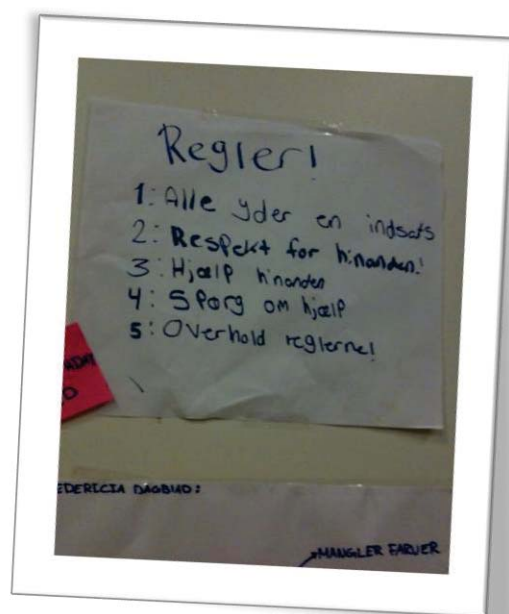 Regler!
1: Alle yder en indsats
2: Respekt for hinanden!
3: Hjælp hinanden
4: Spørg om hjælp
5: Overhold reglerne!
EDERICIA DAGBLAD:
MANGLER FARVER